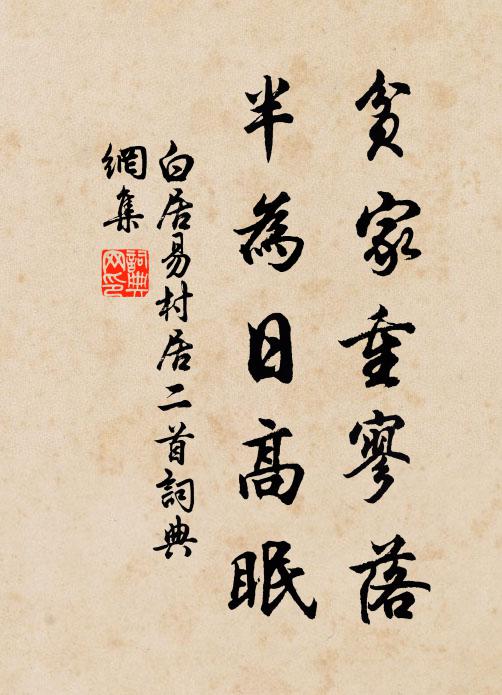 貧家重寥落
半為日高眠
白居易村居二首詞典
網集
詞典网印